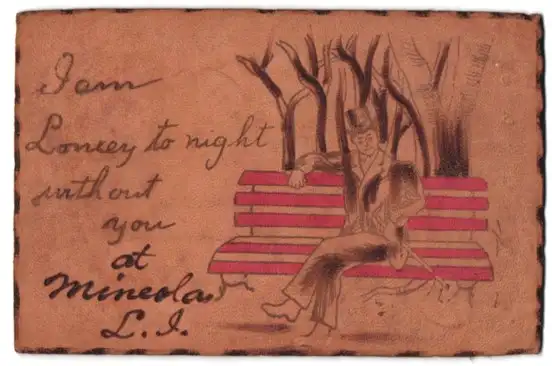 I am
Loney to night
without
you
at
Mineola
L. I.